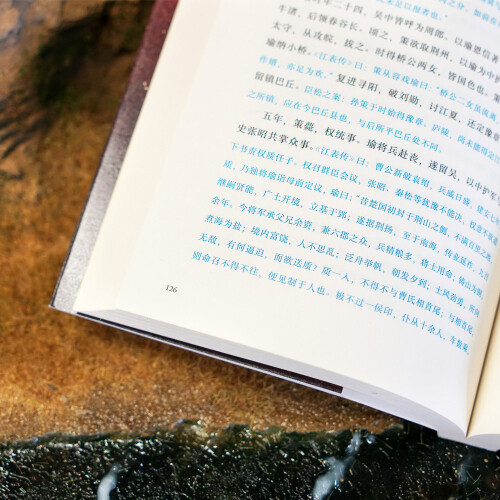 之足以报者也。”
牛渚，后领春谷长，顷之，策欲取荆州，以瑜为中
瑜时年二十四，吴中皆呼为周郎。以瑜恩信著
太守，从攻皖，拔之。时得桥公两女，皆国色也。
瑜纳小桥。《江表传》曰：策从容戏瑜曰：“桥公二女虽流离，
作婿，亦足为欢。”复进寻阳，破刘勋，讨江夏，还定豫章
留镇巴丘。臣松之案：孙策于时始得豫章、庐陵，尚未能得定
之所镇，应在今巴丘县也，与后所平巴丘处不同。
五年，策薨，权统事。瑜将兵赴丧，遂留吴，以中护军
史张昭共掌众事。《江表传》曰：曹公新破袁绍，兵威日盛，建安
下书责权质任子。权召群臣会议，张昭、秦松等犹豫不能决，权意不欲
质，乃独将瑜诣母前定议，瑜曰：“昔楚国初封于荆山之侧，不满百里之地，
继嗣贤能，广土开境，立基于郢，遂据荆扬，至于南海，传业延祚，九百
余年。今将军承父兄余资，兼六郡之众，兵精粮多，将士用命，铸山为铜，
煮海为盐，境内富饶，人不思乱，泛舟举帆，朝发夕到，士风劲勇，所向
无敌，有何逼迫，而欲送质？质一入，不得不与曹氏相首尾；与相首尾，
则命召不得不往，便见制于人也。极不过一侯印，仆从十余人，车数乘，
126